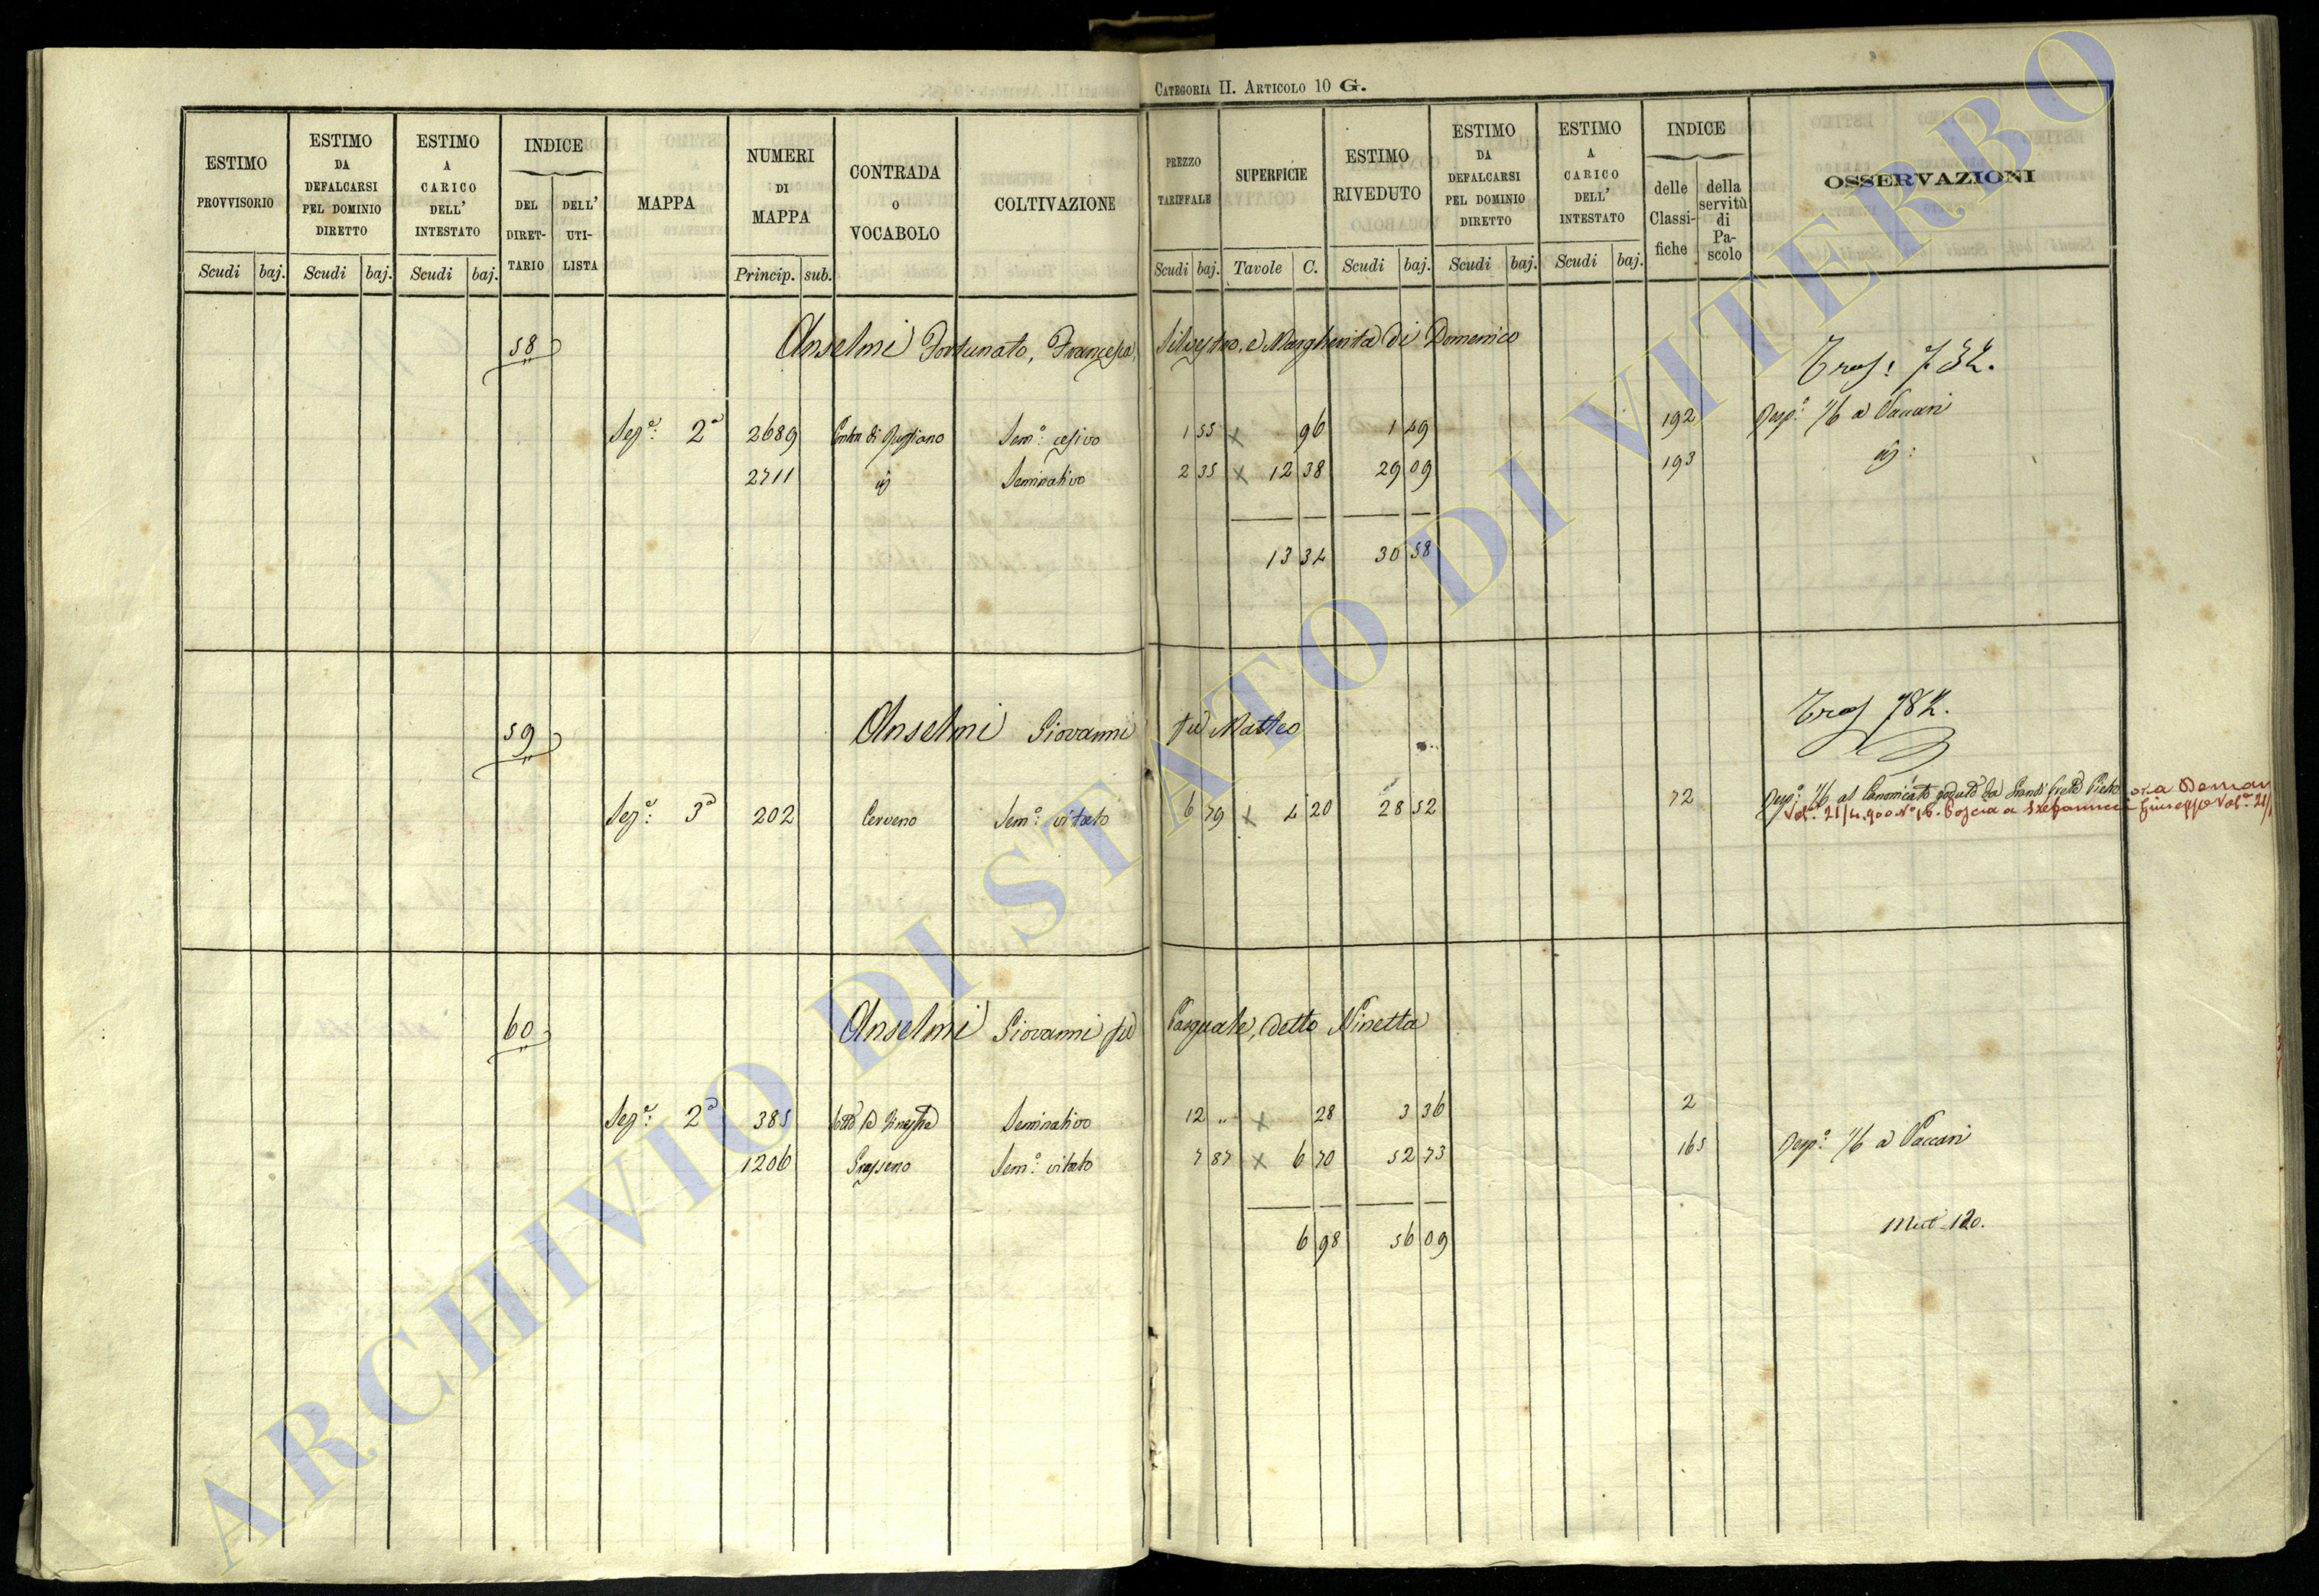 CATEGORIA II. ARTICOLO 10 G.
ESTIMO PROVVISORIO Scudi baj.
ESTIMO DA DEFALCARSI PEL DOMINIO DIRETTO Scudi baj.
ESTIMO A CARICO DELL' INTESTATO Scudi baj.
INDICE DEL DIRET- TARIO DELL' UTI- LISTA
MAPPA
NUMERI DI MAPPA Princip. sub.
CONTRADA O VOCABOLO
COLTIVAZIONE
PREZZO TARIFFALE Scudi baj.
SUPERFICIE Tavole C.
ESTIMO RIVEDUTO Scudi baj.
ESTIMO DA DEFALCARSI PEL DOMINIO DIRETTO Scudi baj.
ESTIMO A CARICO DELL' INTESTATO Scudi baj.
INDICE delle Classi- fiche della servitù di Pa- scolo
OSSERVAZIONI
58 Anselmi Fortunato, Francesca, Silvestro, e Margherita di Domenico
Sez.e: 2a 2689 Sem.o: cesivo 1 55 x 96 1 49 192 Desp.o: 1/6 a Vaccari
2711 id Seminativo 2 35 x 12 38 29 09 193 id:
13 34 30 58
59 Anselmi Giovanni fu Matteo
Sez.e: 3a 202 Cerveno Sem.o: vitato 6 79 x 4 20 28 52 72 1/6 al Canonicato goduto da Pietro ora
60 Anselmi Giovanni fu Pasquale, detto Ninetta
Sez.e: 2a 385 Seminativo 12 " x 28 3 36 2
1206 Grasseno Sem.o: vitato 7 87 x 6 70 52 73 165 Desp.o: 1/6 a Vaccari
6 98 56 09
Mut 120.
ARCHIVIO DI STATO DI VITERBO